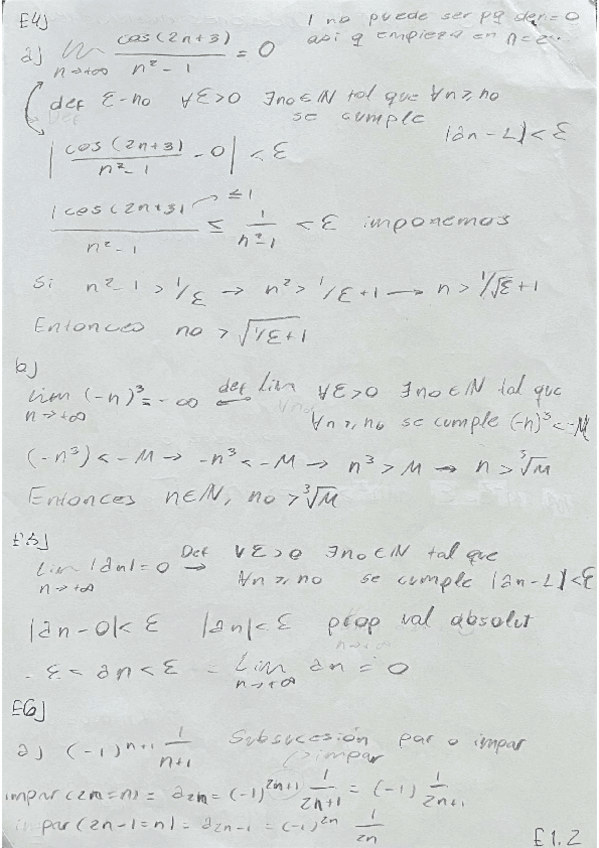 E4)
1 no puede ser pq den=0
así q empieza en n=2...
a) lim n→+∞ cos(2n+3) / n²-1 = 0
def ε-no ∀ε>0 ∃no∈ℕ tal que ∀n≥no
se cumple
|an-L|<ε
|cos(2n+3) / n²-1 - 0| < ε
|cos(2n+3)| / n²-1 ≤ 1 / n²-1 < ε imponemos
≤1
Si n²-1 > 1/ε → n² > 1/ε+1 → n > √1/ε+1
Entonces no > √1/ε+1
b)
lim n→+∞ (-n)³ = -∞ def lim ∀ε>0 ∃no∈ℕ tal que
∀n≥no se cumple (-n)³<-M
(-n³) < -M → -n³ < -M → n³ > M → n > ³√M
Entonces n∈ℕ, no > ³√M
E5)
lim n→+∞ |an| = 0 Def → ∀ε>0 ∃no∈ℕ tal que
∀n≥no se cumple |an-L|<ε
|an-0|<ε |an|<ε prop val absolut
-ε < an < ε - lim n→+∞ an = 0
E6)
a) (-1)ⁿ⁺¹ 1/n+1 Subsucesión par o impar
impar
impar (2n=n) = a2n = (-1)²ⁿ⁺¹ 1/2n+1 = (-1) 1/2n+1
impar (2n-1=n) = a2n-1 = (-1)²ⁿ 1/2n
E1.2